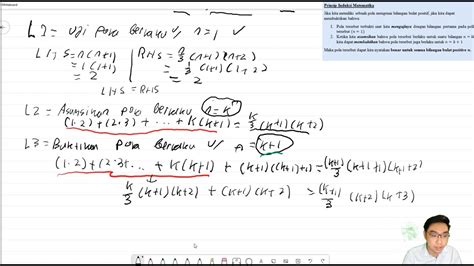 Prinsip Induksi Matematika
Jika kita memiliki sebuah pola mengenai bilangan bulat positif, jika kita dapat
membuktikan bahwa
1. Pola tersebut terbukti saat kita mengujinya dengan bilangan pertama pada pola
tersebut (n = 1)
2. Ketika kita asumsikan bahwa pola tersebut berlaku untuk suatu bilangan n = k
kita dapat membuktikan bahwa pola tersebut juga berlaku untuk n = k + 1
Maka kita dapat nyatakan benar untuk semua bilangan bulat positif n.
L1 = Uji Pola Berlaku u/ n=1 ✓
LHS = n(n+1) | RHS = n/3 (n+1)(n+2)
= 1(1+1) | = 1/3 (1+1)(1+2)
= 2 | = 2
LHS = RHS
L2 = Asumsikan Pola Berlaku n=k
(1·2) + (2·3) + ... + K(k+1) = k/3 (k+1)(k+2)
L3 = Buktikan Pola Berlaku u/ n = k+1
(1·2) + (2·3) + ... + K(k+1) + (k+1)((k+1)+1) = (k+1)/3 (k+1+1)(k+1+2)
k/3 (k+1)(k+2) + (k+1)(k+2) = (k+1)/3 (k+2)(k+3)